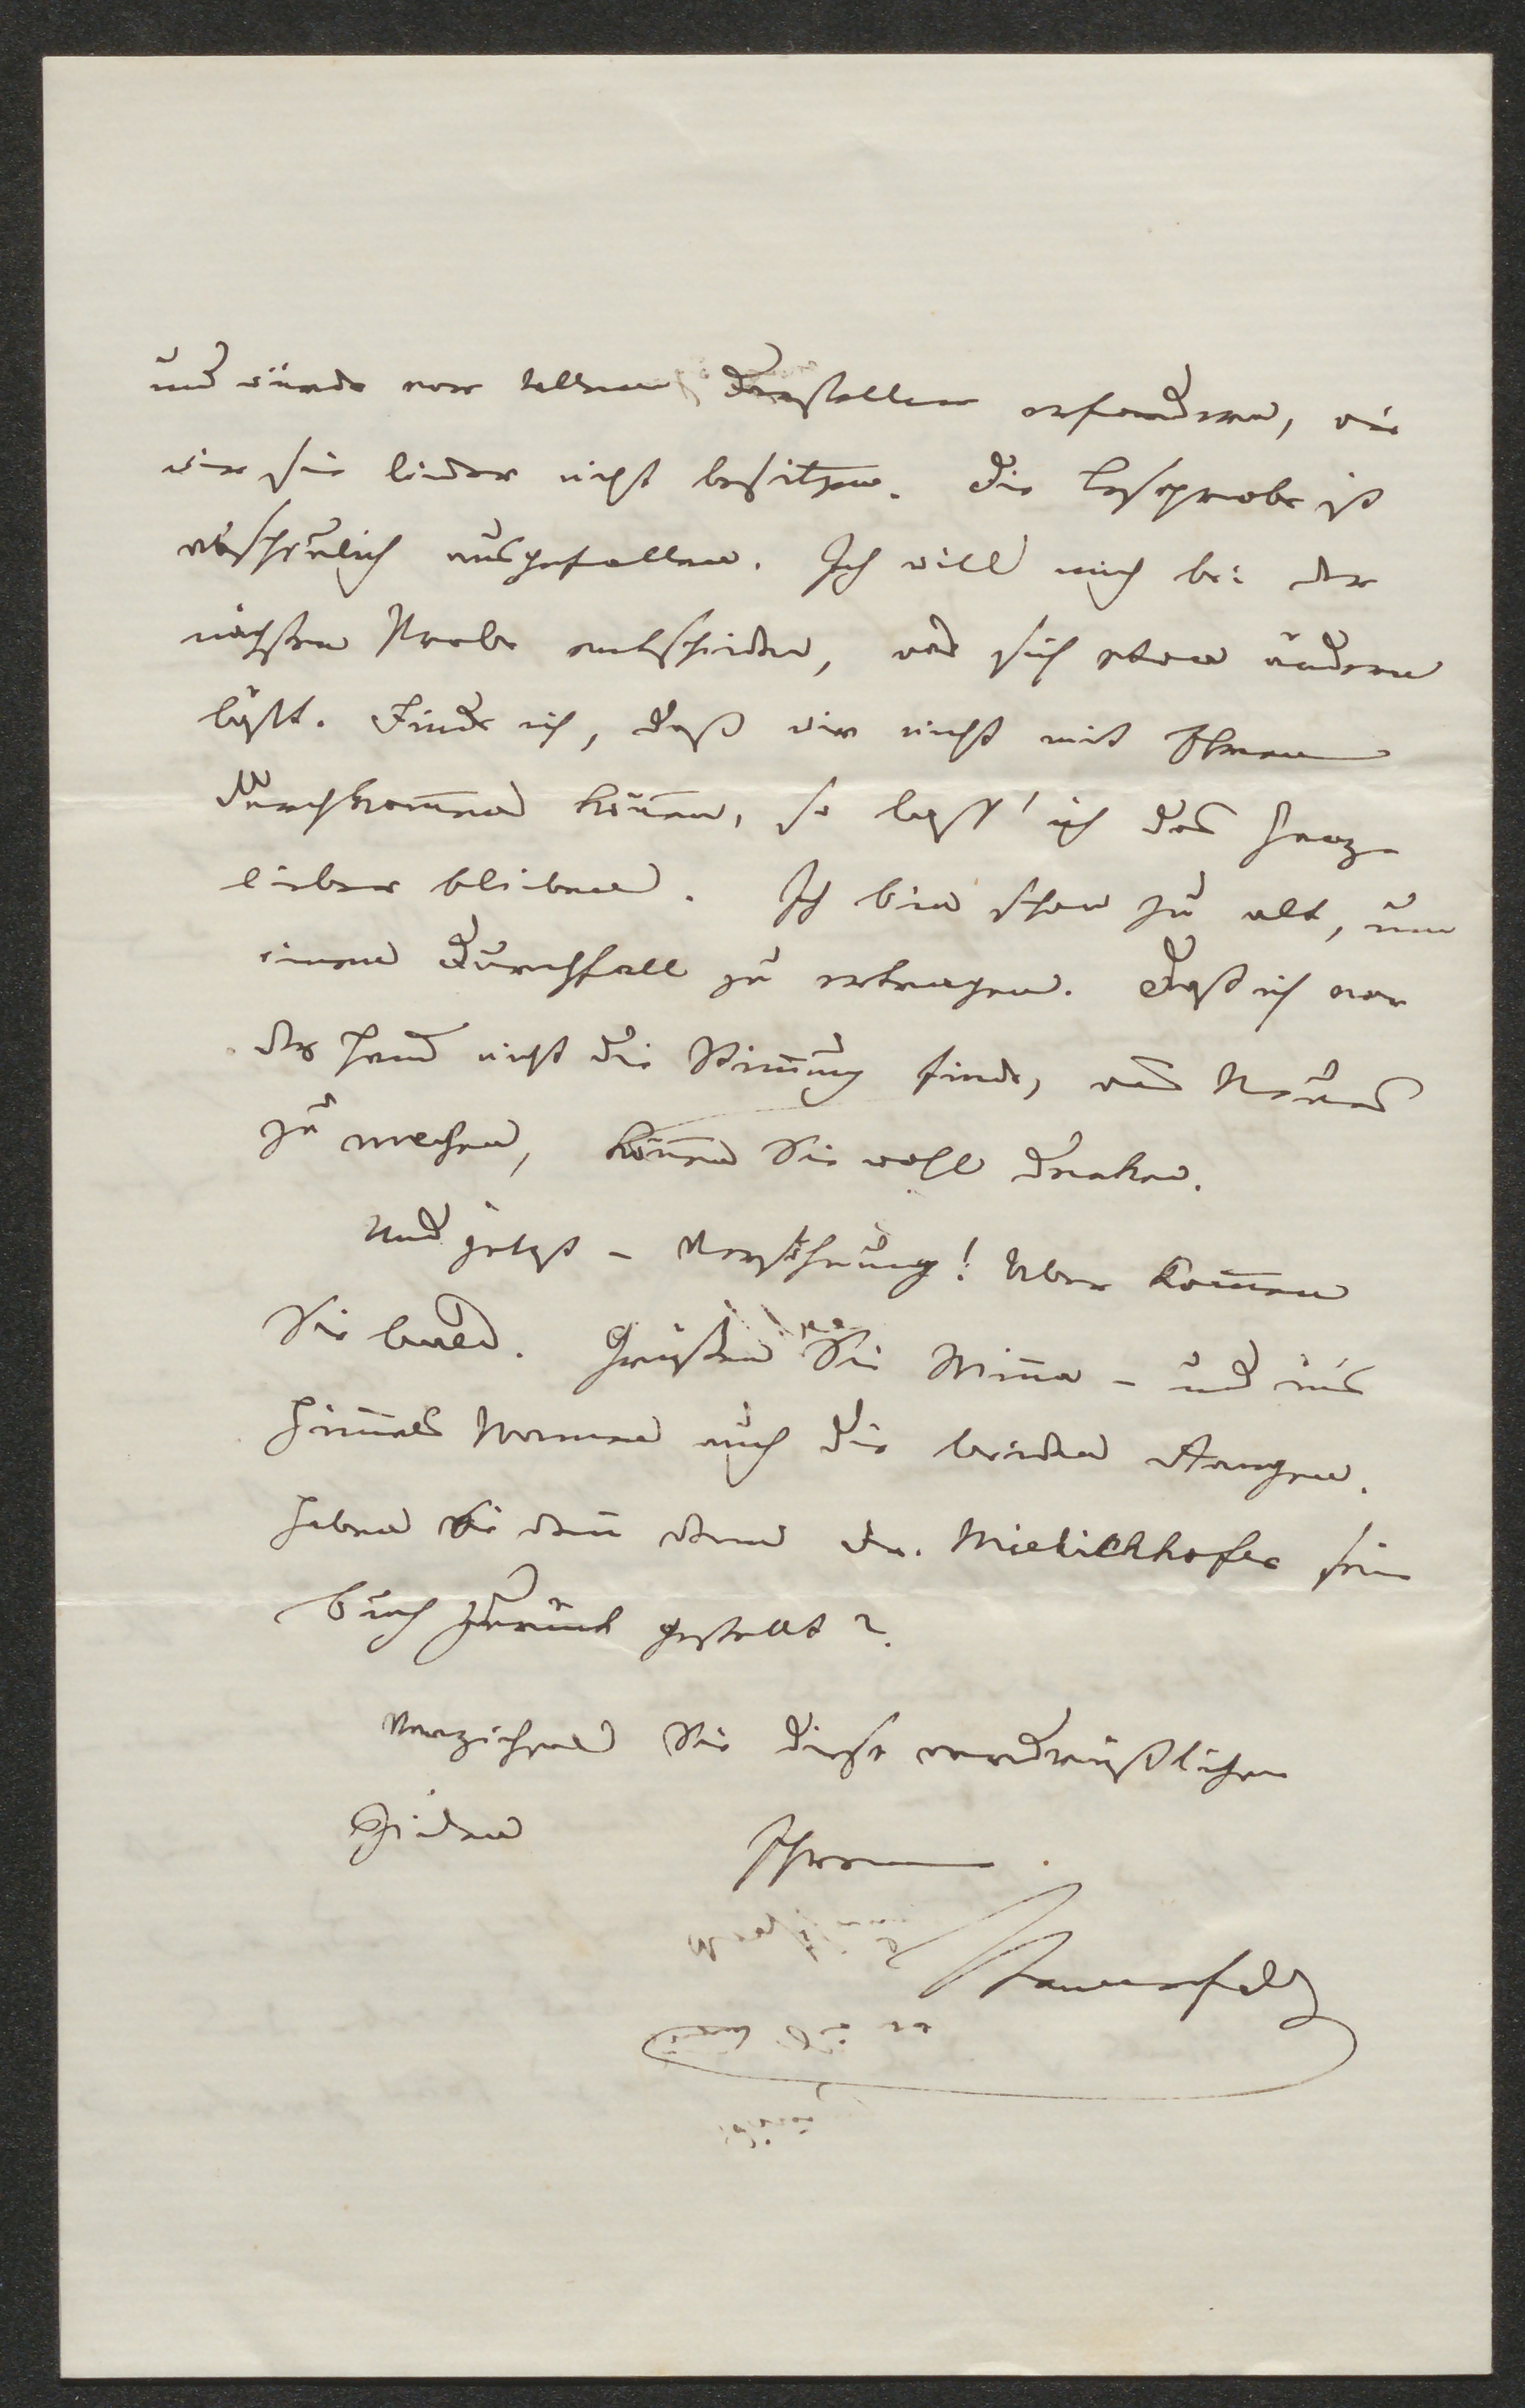 und würde vor allem Darsteller erfordern, wie
wir sie leider nicht besitzen. Die Leseprobe ist
abscheulich ausgefallen. Ich will mich bei der
nächsten Probe entscheiden, was sich etwa ändern
läßt. Finde ich, daß wir nicht mit Ehren
durchkom̅en kön̅en, so lass' ich das Ganze
lieber bleiben. Ich bin schon zu alt, um
einen Durchfall zu ertragen. Daß ich vor
der Hand nicht die Stim̅ung finde, was Neues
zu machen, kön̅en Sie wohl denken.
Und jetzt – Versöhnung! Aber kom̅en
Sie bald. Grüßen Sie Min̅a – und in's
Him̅els Namen auch die beiden
Haben Sie den̅ dem Dr. Mielichhofer sein
Buch zurück gestellt?
Verzeihen Sie diese verdrüßlichen
Zeilen Ihrem
Bauernfeld